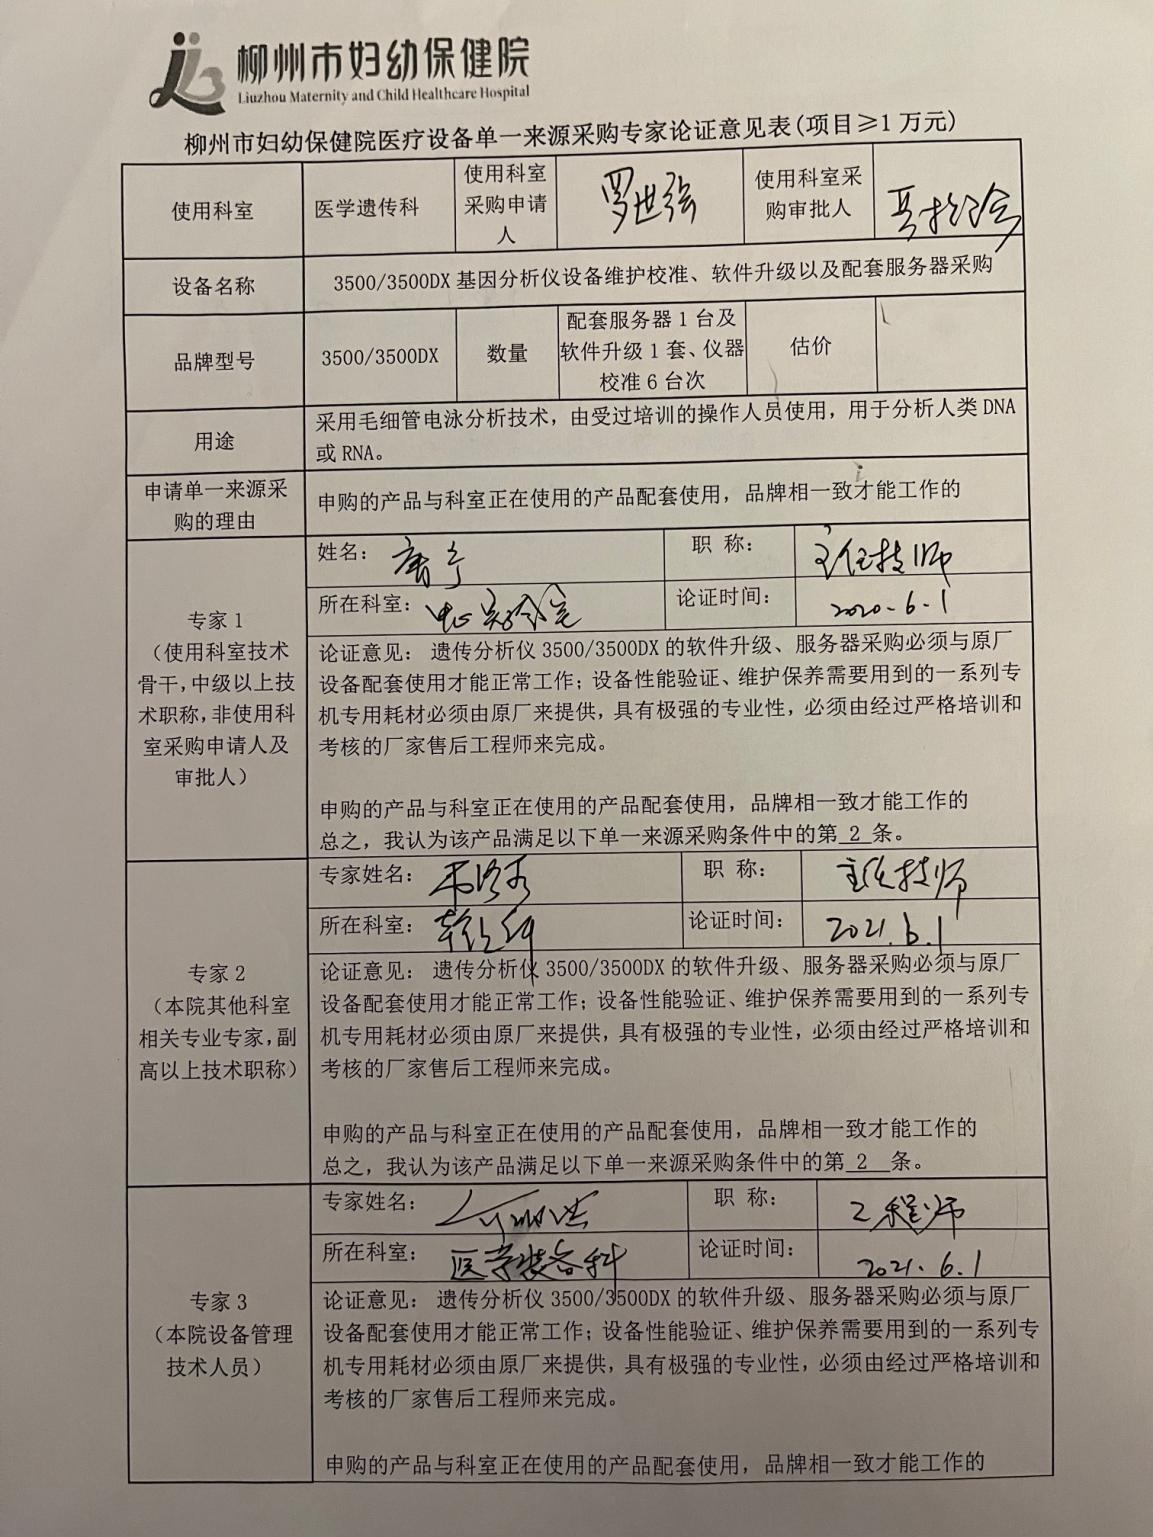 柳州市妇幼保健院
Liuzhou Maternity and Child Healthcare Hospital
柳州市妇幼保健院医疗设备单一来源采购专家论证意见表(项目≥1万元)
使用科室
医学遗传科
使用科室
采购申请
人
罗世强
使用科室采
购审批人
设备名称
3500/3500DX 基因分析仪设备维护校准、软件升级以及配套服务器采购
品牌型号
3500/3500DX
数量
配套服务器 1 台及
软件升级 1 套、仪器
校准 6 台次
估价
用途
采用毛细管电泳分析技术，由受过培训的操作人员使用，用于分析人类 DNA
或 RNA。
申请单一来源采
购的理由
申购的产品与科室正在使用的产品配套使用，品牌相一致才能工作的
专家 1
（使用科室技术
骨干，中级以上技
术职称，非使用科
室采购申请人及
审批人）
姓名：
职 称：
主任技师
所在科室：中心实验室
论证时间：
2020.6.1
论证意见： 遗传分析仪 3500/3500DX 的软件升级、服务器采购必须与原厂
设备配套使用才能正常工作；设备性能验证、维护保养需要用到的一系列专
机专用耗材必须由原厂来提供，具有极强的专业性，必须由经过严格培训和
考核的厂家售后工程师来完成。
申购的产品与科室正在使用的产品配套使用，品牌相一致才能工作的
总之，我认为该产品满足以下单一来源采购条件中的第 2 条。
专家 2
（本院其他科室
相关专业专家，副
高以上技术职称）
专家姓名：
职 称：
主任技师
所在科室：
论证时间：
2021.6.1
论证意见： 遗传分析仪 3500/3500DX 的软件升级、服务器采购必须与原厂
设备配套使用才能正常工作；设备性能验证、维护保养需要用到的一系列专
机专用耗材必须由原厂来提供，具有极强的专业性，必须由经过严格培训和
考核的厂家售后工程师来完成。
申购的产品与科室正在使用的产品配套使用，品牌相一致才能工作的
总之，我认为该产品满足以下单一来源采购条件中的第 2 条。
专家 3
（本院设备管理
技术人员）
专家姓名：
职 称：
工程师
所在科室：
医学装备科
论证时间：
2021.6.1
论证意见： 遗传分析仪 3500/3500DX 的软件升级、服务器采购必须与原厂
设备配套使用才能正常工作；设备性能验证、维护保养需要用到的一系列专
机专用耗材必须由原厂来提供，具有极强的专业性，必须由经过严格培训和
考核的厂家售后工程师来完成。
申购的产品与科室正在使用的产品配套使用，品牌相一致才能工作的